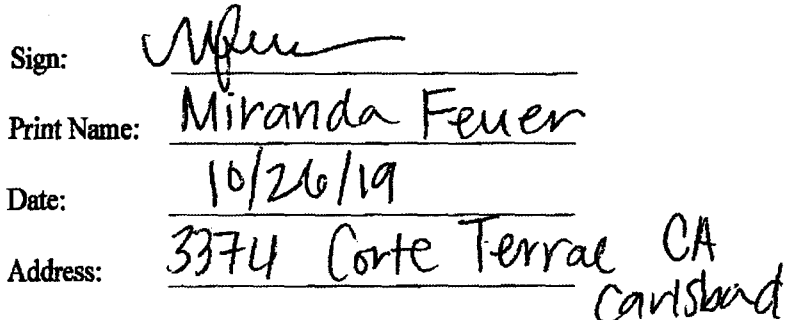 Sign:
Print Name: Miranda Feuer
Date: 10/26/19
Address: 3374 Corte Terral CA
Carlsbad